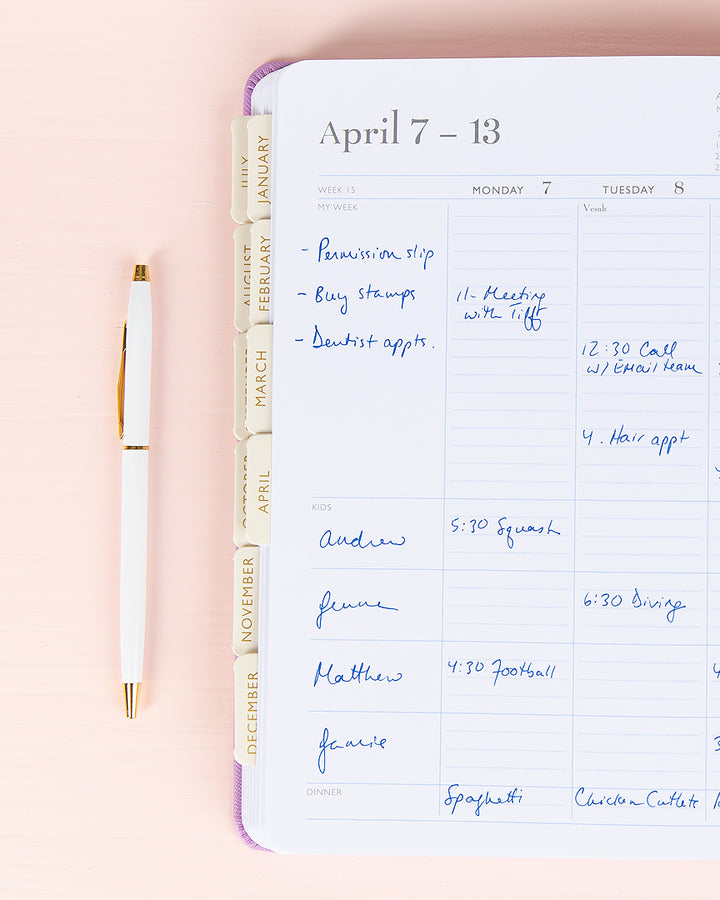 April 7 – 13
WEEK 15
MONDAY 7
TUESDAY 8
MY WEEK
Vesak
- Permission slip
- Buy stamps
- Dentist appts.
11- Meeting
with Tiff
12:30 Call
w/ EMail team
4. Hair appt
KIDS
Andrew
5:30 Squash
Jenna
6:30 Diving
Matthew
4:30 Football
Jamie
DINNER
Spaghetti
Chicken Cutlets
JANUARY
FEBRUARY
MARCH
APRIL
JULY
AUGUST
OCTOBER
NOVEMBER
DECEMBER